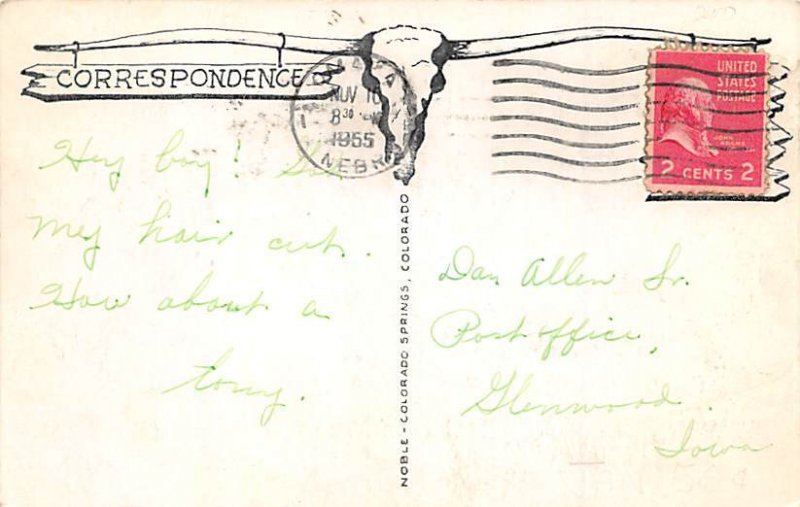 CORRESPONDENCE
OMAHA
NOV 10
8 30
1955
NEBR
UNITED
STATES
POSTAGE
JOHN
ADAMS
2 CENTS 2
Hey boy! Got
my hair cut.
How about a
Tony.
NOBLE - COLORADO SPRINGS, COLORADO
Dan Allen Sr.
Post office,
Glenwood.
Iowa